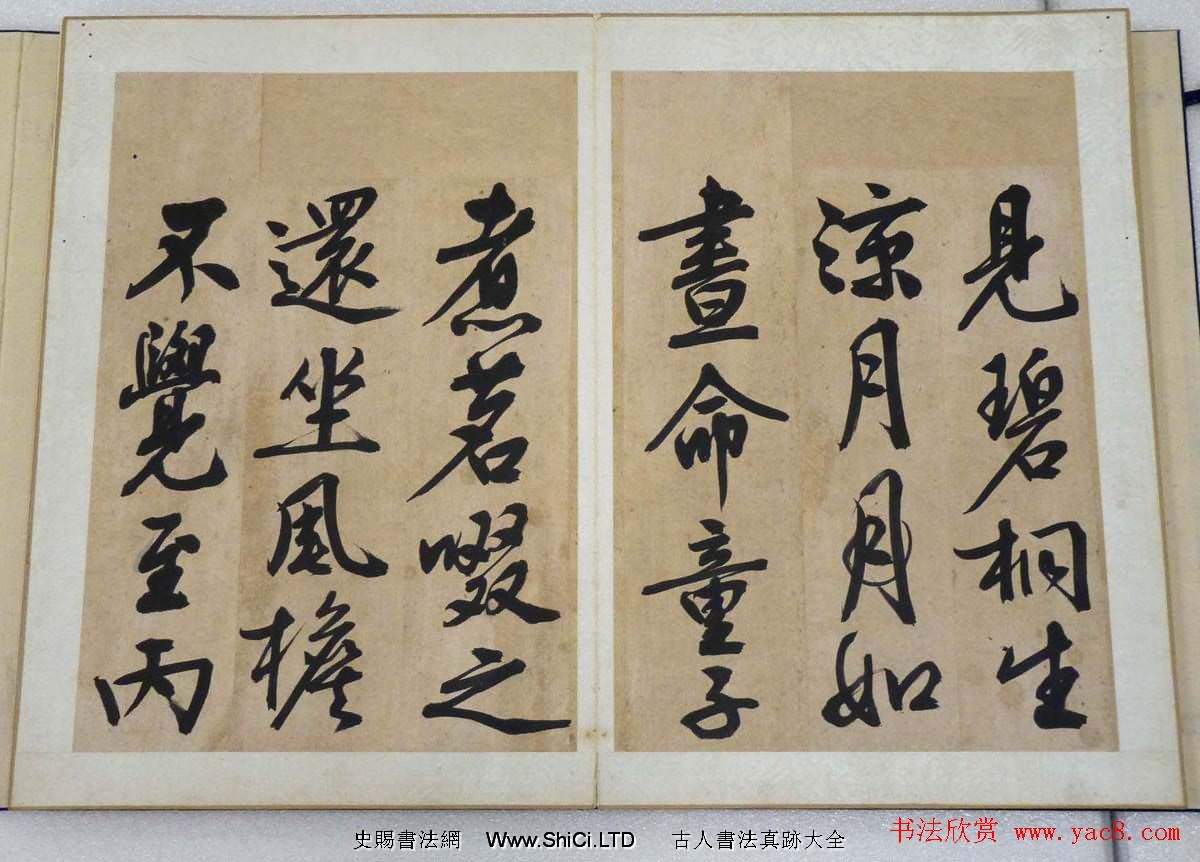 見碧桐生
涼月月如
晝命童子
煮茗啜之
還坐風檐
不覺至丙
史賜書法網 Www.ShiCi.LTD 古人書法真跡大全
书法欣赏 www.yac8.com